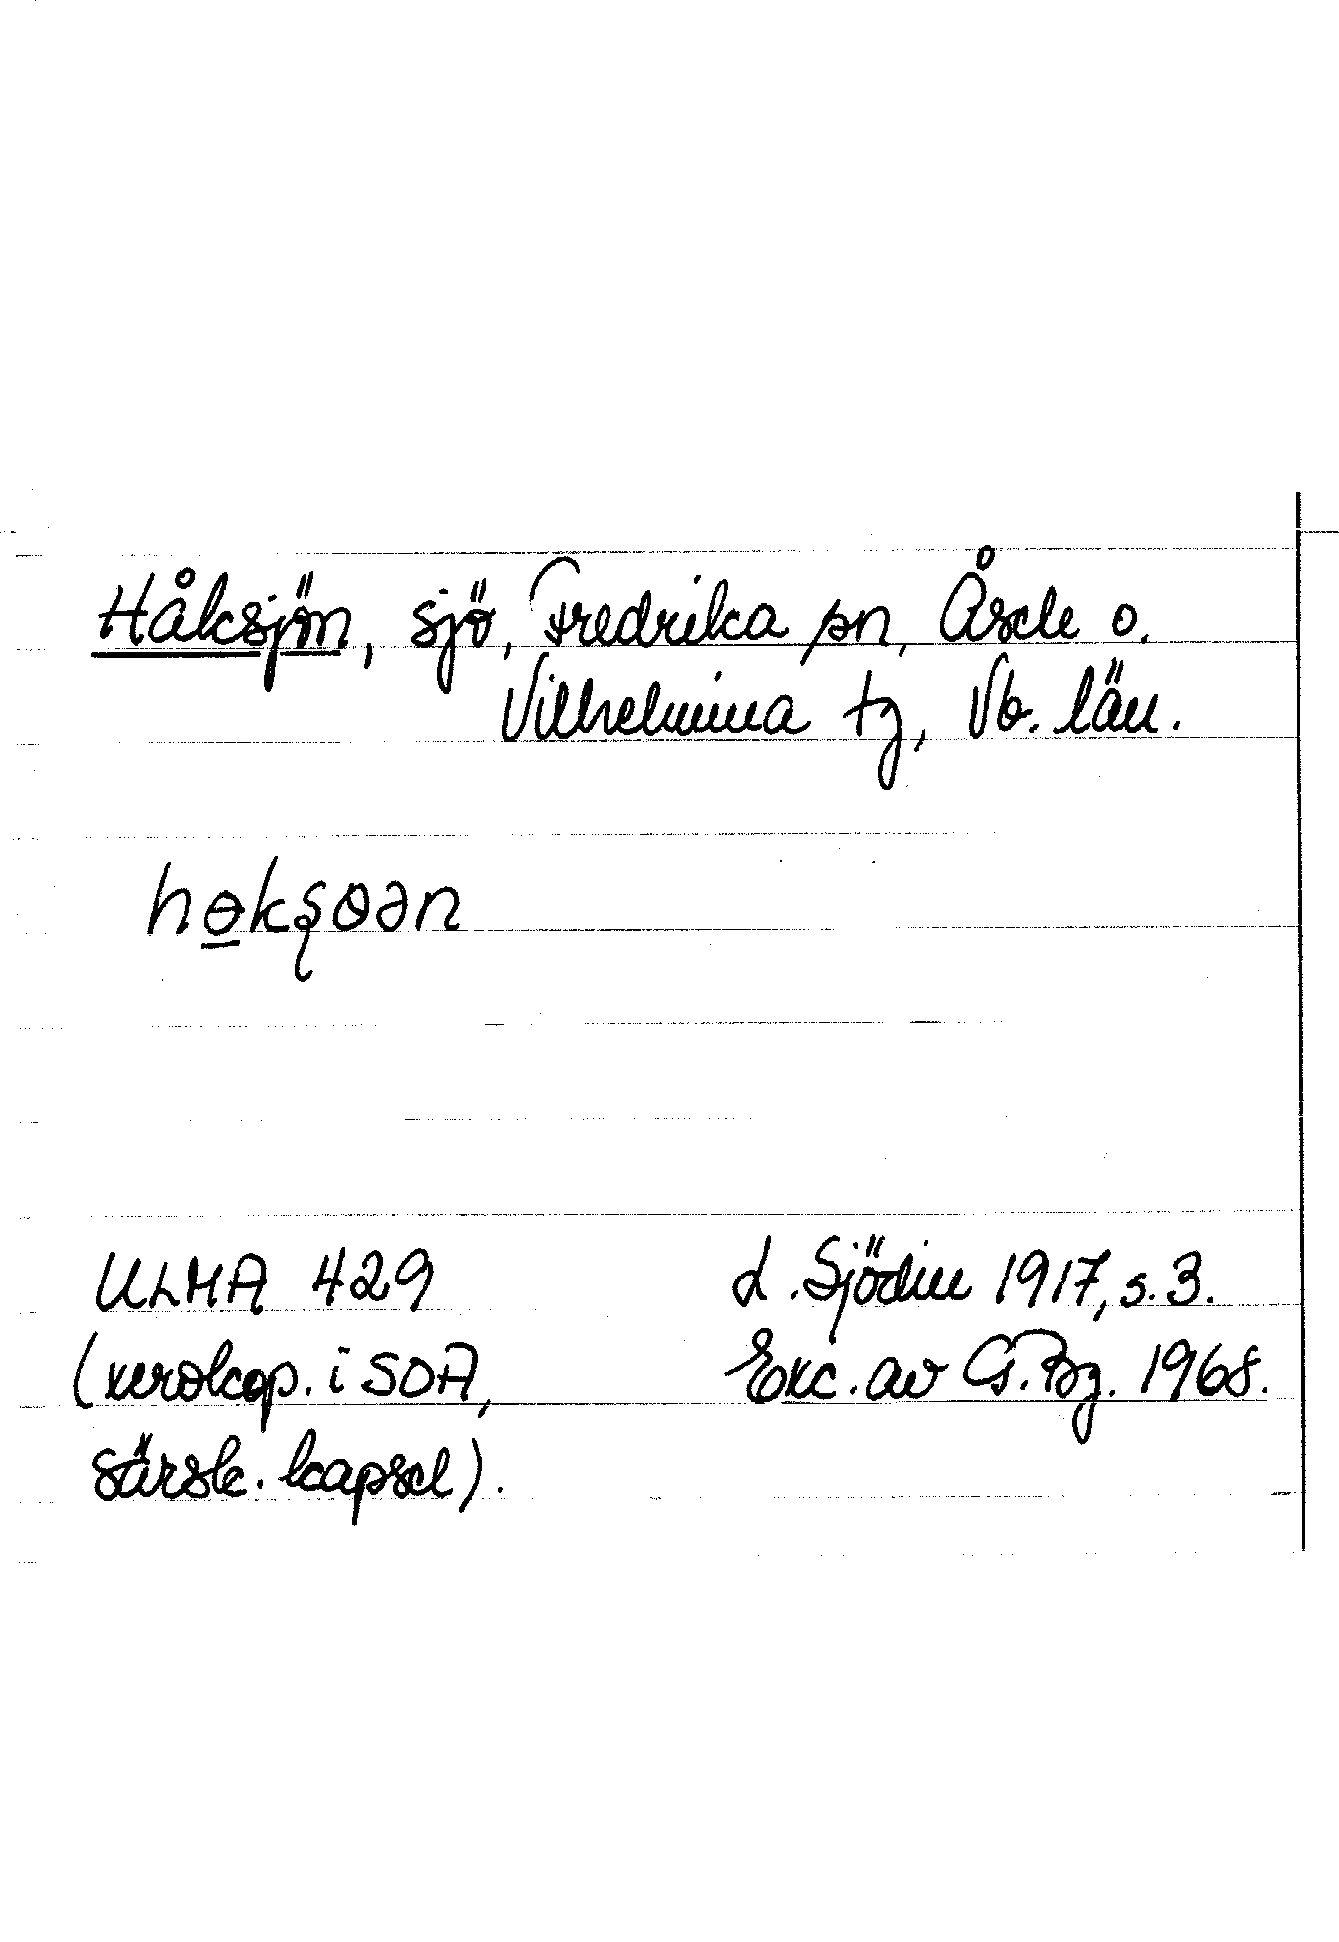 Håksjön, sjö, Fredrika sn, Åsele o.
Vilhelmina tg, Vb. län.
hɵkʂɵən
ULMA 429
(xerokop. i SOA,
särsk. kapsel).
L. Sjödin 1917, s. 3.
Exc. av G. Bg. 1968.